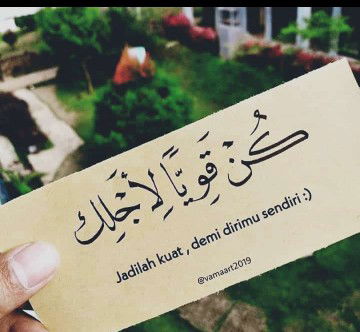 كُنْ قَوِيًّا لِأَجْلِك
Jadilah kuat , demi dirimu sendiri :)
@vamaart2019